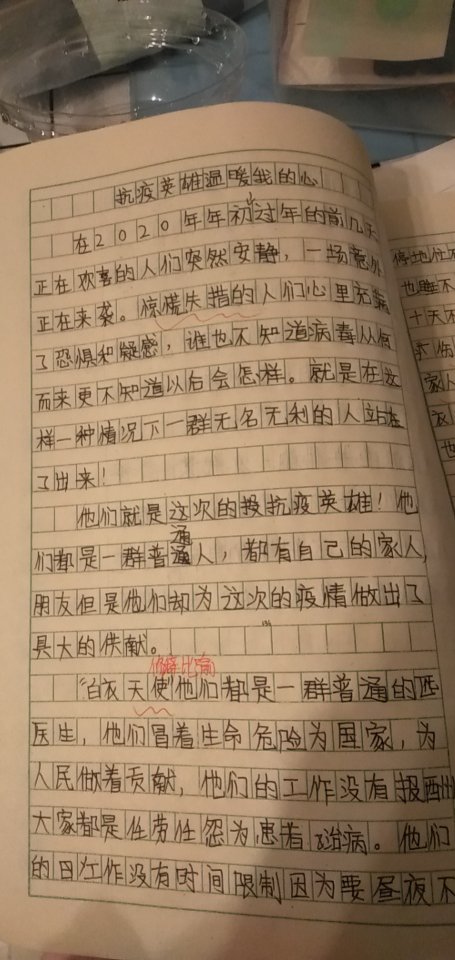 抗疫英雄温暖我的心
在2020年年初过年的前几天
正在欢喜的人们突然安静，一场意外
正在来袭。惊慌失措的人们心里充满
了恐惧和疑惑，谁也不知道病毒从何
而来更不知道以后会怎样。就是在这
样一种情况下一群无名无利的人站在
了出来！
他们就是这次的投抗疫英雄！他
通
们都是一群普通人，都有自己的家人，
朋友但是他们却为这次的疫情做出了
具大的供献。
比喻
“白衣天使”他们都是一群普通的医
医生，他们冒着生命危险为国家，为
人民做着贡献，他们的工作没有报酬
大家都是任劳任怨为患者治病。他们
的日工作没有时间限制因为要昼夜不
停地住
也睡不
十天不
家人
衣
也